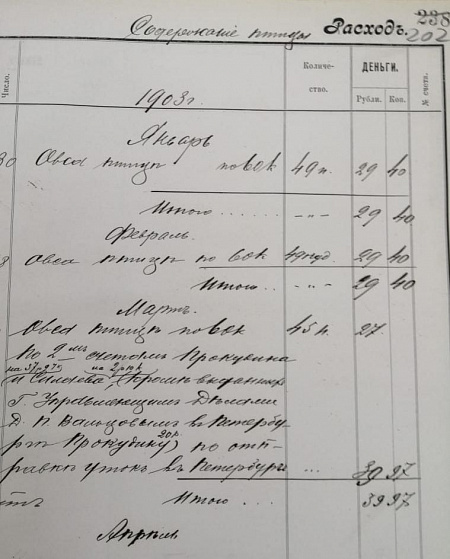 Содержанiе птицы Расходъ. 238
202
Число.
Количе-
ство.
ДЕНЬГИ.
Рубли. Коп.
№ счета.
1903 г.
Январь
30 Овса птицѣ по 60к 49 п. 29 40
Итого ...... -„- 29 40
Февраль.
8 Овса птицѣ по 60к 49 пуд 29 40
Итого .. -„- 29 40
Мартъ.
Овса птицѣ по 60к 45 п. 27
По 2мъ счетамъ Прокудина
на 37р 97к на 2 р
и (кромѣ выданныхъ
Г. Управляющимъ Дѣлами
Д. П. Вальцовымъ в Петербу
ргѣ Прокудину 20к) по отп
равкѣ утокъ въ Петербургъ ... 39 97
Итого ... 39 97
Апрѣль